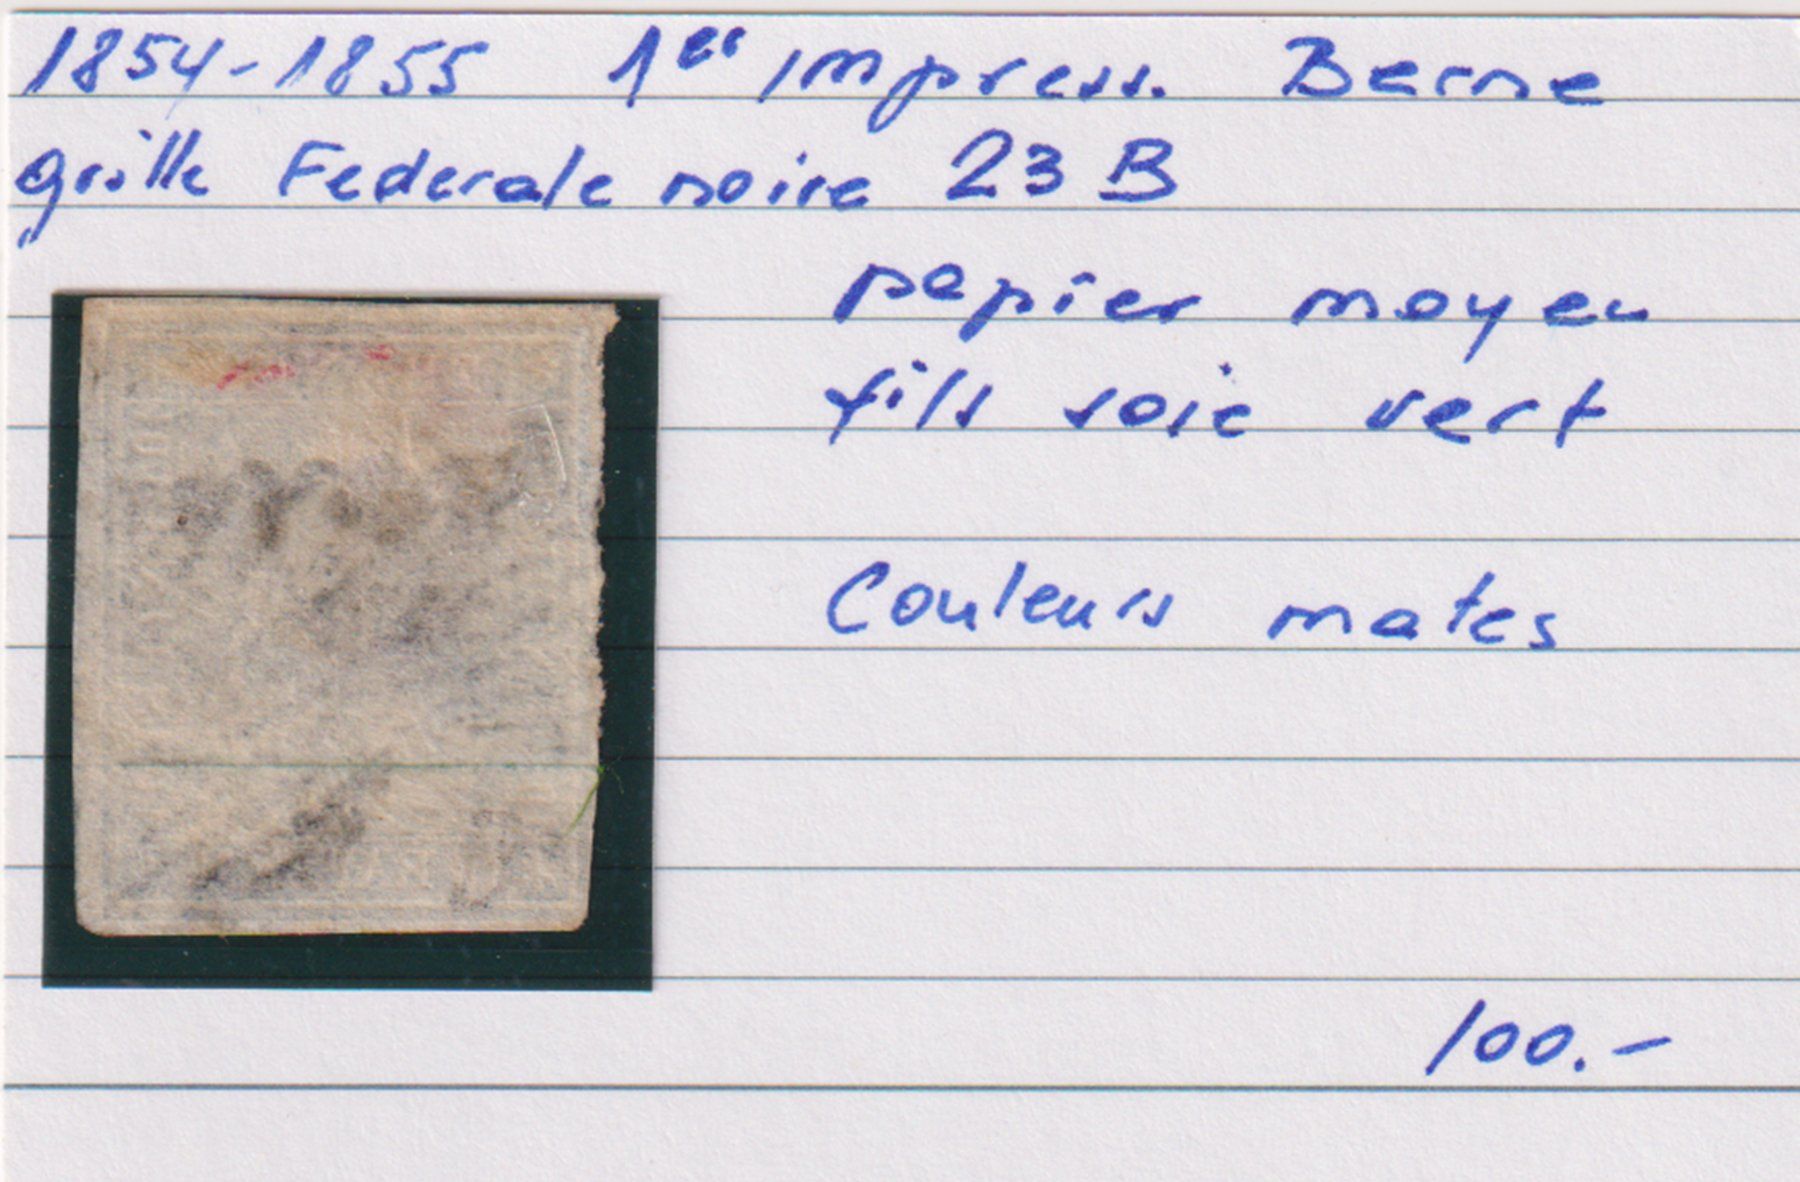 1854-1855 1er impress. Berne
grille Federale noire 23 B
papier moyen
fils soie vert
Couleurs mates
100.-